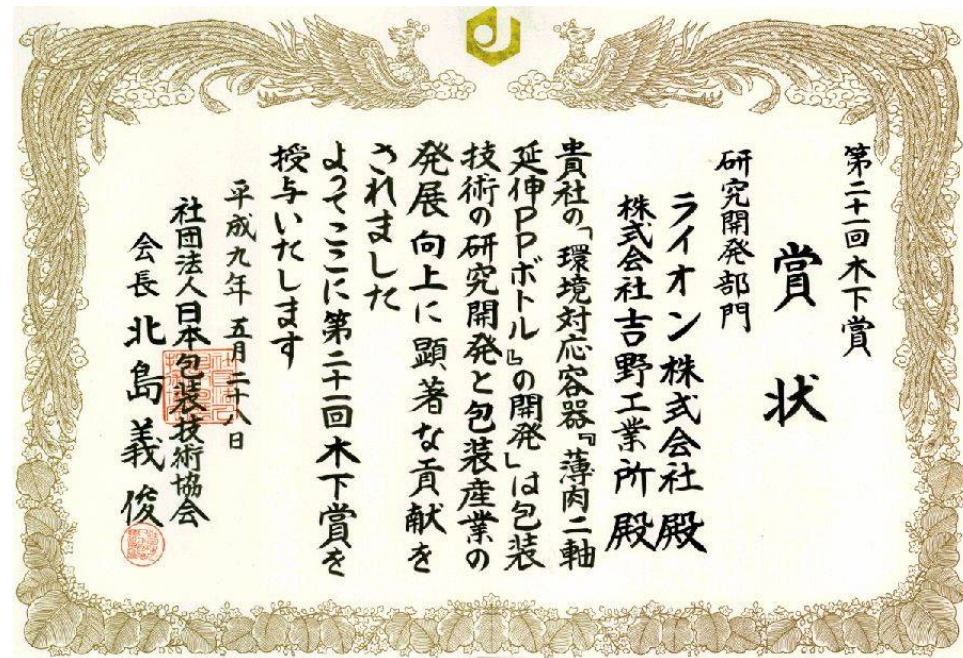 第二十一回木下賞
賞状
研究開発部門
ライオン株式会社殿
株式会社吉野工業所殿
貴社の「環境対応容器『薄肉二軸
延伸PPボトル』の開発」は包装
技術の研究開発と包装産業の
発展向上に顕著な貢献を
されました
よってここに第二十一回木下賞を
授与いたします
平成九年五月二十八日
社団法人日本包装技術協会
会長北島義俊